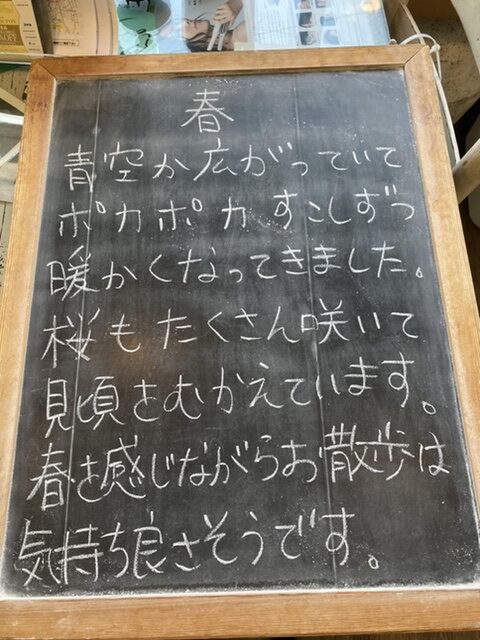 春
青空が広がっていて
ポカポカ すこしずつ
暖かくなってきました。
桜もたくさん咲いて
見頃をむかえています。
春を感じながらお散歩は
気持ち良さそうです。